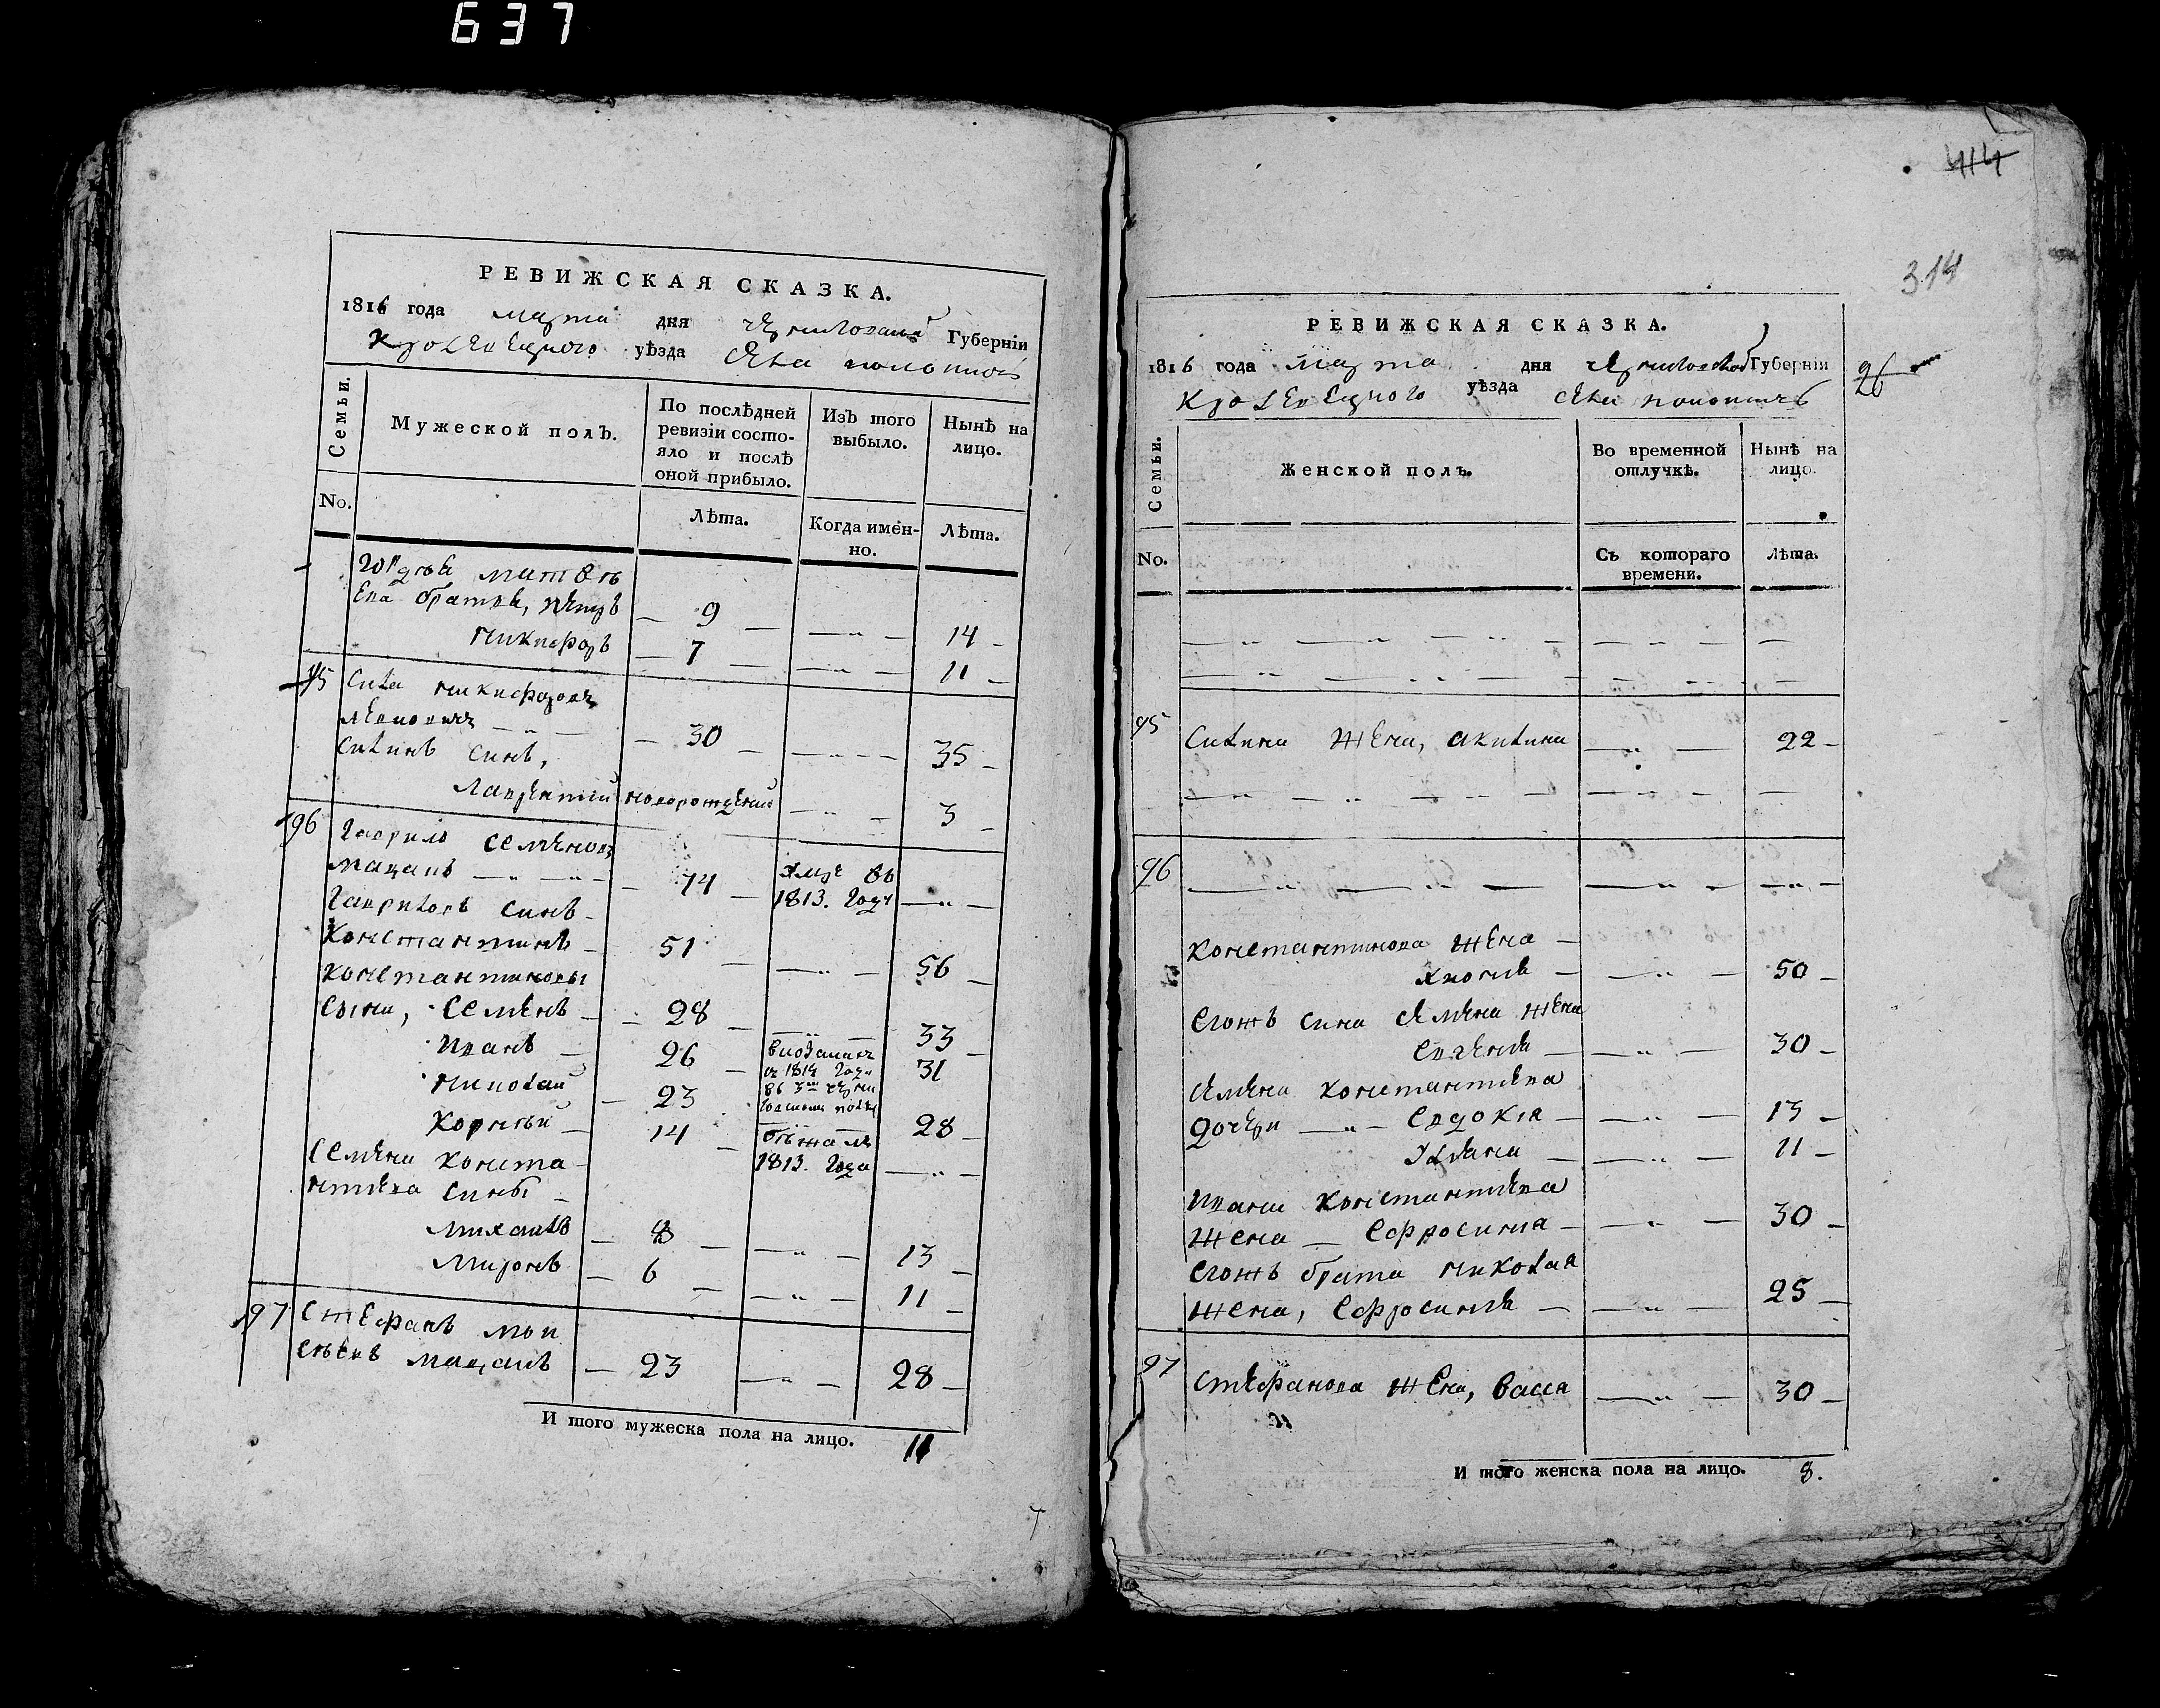 637
РЕВИЖСКАЯ СКАЗКА.
1816 года марта дня Черниговской Губерніи
Кролевецкого уѣзда Села
Семьи.
Мужеской полъ.
По послѣдней ревизіи состо-
яло и послѣ
оной прибыло.
Изъ того выбыло.
Нынѣ на лицо.
No.
Лѣта.
Когда имен-
но.
Лѣта.
его братья, петръ 9 14
никифоръ 7 11
95 Сила никифоровъ
30 35
Силинъ синъ,
Лаврентий новорожденній 3
96 Гаврило Семенов
мацакъ 74 умре въ
1813. Году
Гавриловъ синъ
Константинъ 51 56
константиновы
сыни, Семенъ 28 33
Иванъ 26 31
николай 23 28
Корній 14 бѣжалъ
1813. Года
Семена конста
нтиева сины
михаилъ 8 13
миронъ 6 11
97 Стефанъ мои
сѣевъ мацакъ 23 28
И того мужеска пола на лицо. 11
414
314
РЕВИЖСКАЯ СКАЗКА.
1816 года марта дня Черниговской Губерніи
Кролевецкого уѣзда Села
96
Семьи.
Женской полъ.
Во временной отлучкѣ.
Нынѣ на лицо.
No.
Съ котораго времени.
Лѣта.
95 Силина жена, акилина 22
96
константинова жена
50
Егожъ сина Семена жена
Евгенія 30
Семена константиева
дочери Евдокия 13
Уляна 11
Ивана константиева
жена Ефросиния 30
Егожъ брата николая
жена, Ефросинія 25
97 Стефанова жена, васса 30
И того женска пола на лицо. 8.